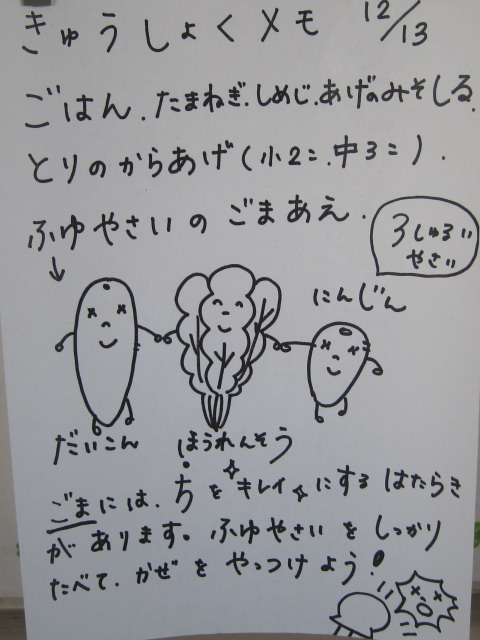 きゅうしょくメモ 12/13
ごはん.たまねぎ.しめじ.あげのみそしる.
とりのからあげ(小2こ.中3こ).
ふゆやさいの ごまあえ.
3しゅるい
やさい
にんじん
だいこん ほうれんそう
ごまには.ちをキレイにするはたらき
があります。ふゆやさいをしっかり
たべて.かぜをやっつけよう!